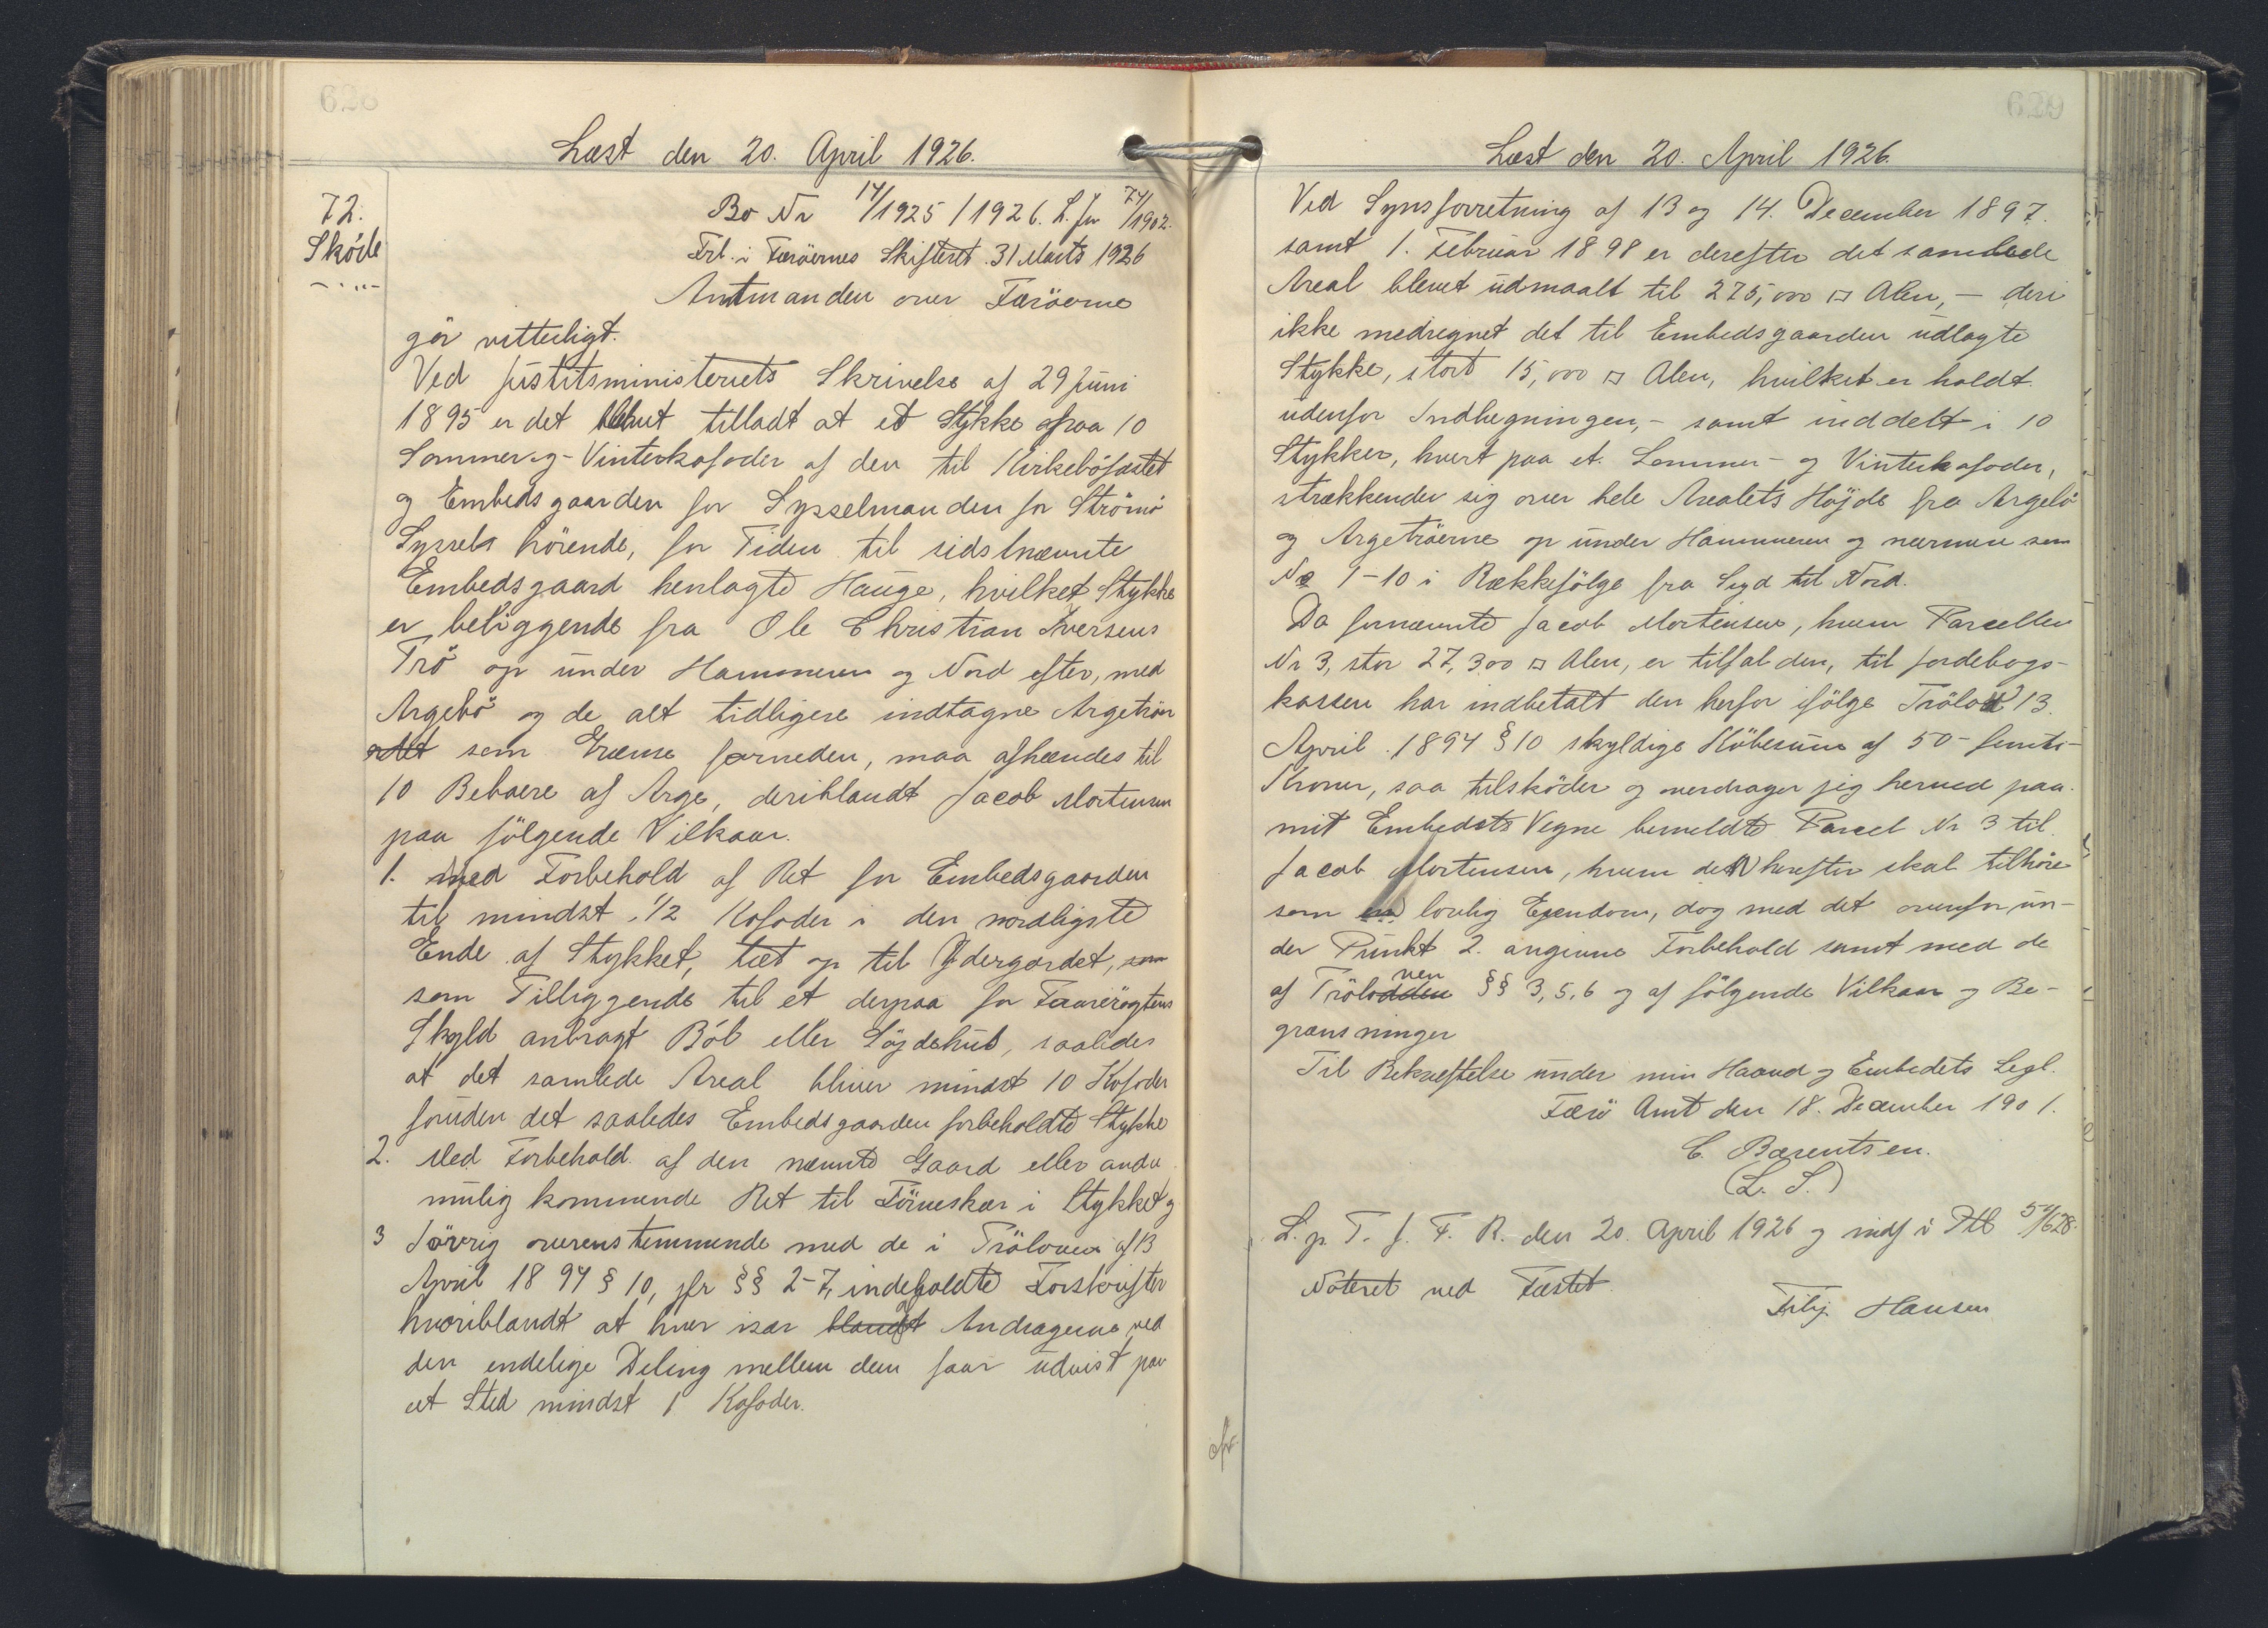 628
Læst den 20. April 1926.
72.
Sköde
Bo Nr 14/1925 / 1926. L. Jur 74/1902.
Frl. i Færöernes Skifteret. 31 Marts 1926
Amtmanden over Færöerne
gör vitterligt.
Ved Justitsministeriets Skrivelse af 29 Juni
1895 er det blevet tilladt at et Stykke paa 10
Sommer og Vinterkofoder af den til Kirkeböfæstet
og Embedsgaarden for Sysselmanden for Strömö
Syssels hörende, for Tiden til sidstnævnte
Embedsgaard henlagte Hauge, hvilket Stykke
er beliggende fra Ole Christian Iversens
Trö op under Hammeren og Nord efter, med
Argebö og de alt tidligere indtagne Argetröer
som Grænse forneden, maa afhændes til
10 Beboere af Arge, deriblandt Jacob Mortensen
paa fölgende Vilkaar.
1. Med Forbehold af Ret for Embedsgaarden
til mindst 1/2 Kofoder i den nordligste
Ende af Stykket, tæt op til Ydergærdet, som
som Tilliggende til et derpaa for Faarerögtens
Skyld anbragt Ból eller Löjdehus, saaledes
at det samlede Areal bliver mindst 10 Kofoder
foruden det saaledes Embedsgaarden forbeholdte Stykke
2. Med Forbehold af den nævnte Gaard eller anden
mulig kommende Ret til Törveskær i Stykket og
3 Iövrig overensstemmende med de i Tröloven af 13
April 1894 § 10, jfr §§ 2-7, indeholdte Forskrifter
hvoriblandt at hver især blandt Andragerne ved
den endelige Deling mellem dem faar udvist paa
et Sted mindst 1 Kofoder.
629
Læst den 20. April 1926.
Ved Synsforretning af 13 og 14. December 1897.
samt 1. Februar 1898 er derefter det samlede
Areal blevet udmaalt til 275,000 □ Alen, – deri
ikke medregnet det til Embedsgaarden udlagte
Stykke, stort 15,000 □ Alen, hvilket er holdt
udenfor Indhegningen, – samt inddelt i 10
Stykker, hvert paa et Sommer- og Vinterkofoder,
strækkender sig over hele Arealets Højde fra Argebö
og Argetröerne op under Hammeren og nærmere som
Nr 1-10 i Rækkefölge fra Syd til Nord.
Da fornævnte Jacob Mortensen, hvem Parcellen
Nr 3, stor 27,300 □ Alen, er tilfalden, til Jordebogs-
kassen har indbetalt den herfor ifölge Trölov 13.
April 1894 § 10 skyldige Köbesum af 50 – femti –
Kroner, saa tilsköder og overdrager jeg herved paa
mit Embedets Vegne bemeldte Parcel Nr 3 til
Jacob Mortensen, hvem den herefter skal tilhöre
som lovlig Ejendom, dog med det ovenfor un-
der Punkt 2. angivne Forbehold samt med de
ven
af Trölodden §§ 3, 5, 6 og af fölgende Vilkaar og Be-
grænsninger
Til Bekræftelse under min Haand og Embedets Segl.
Færö Amt den 18. December 1901.
C. Bærentsen.
(L. S.)
L. p. T. f. F. R. den 20. April 1926 og indf i Ptb 54/628.
Noteret ved Fæstet.
Hansen